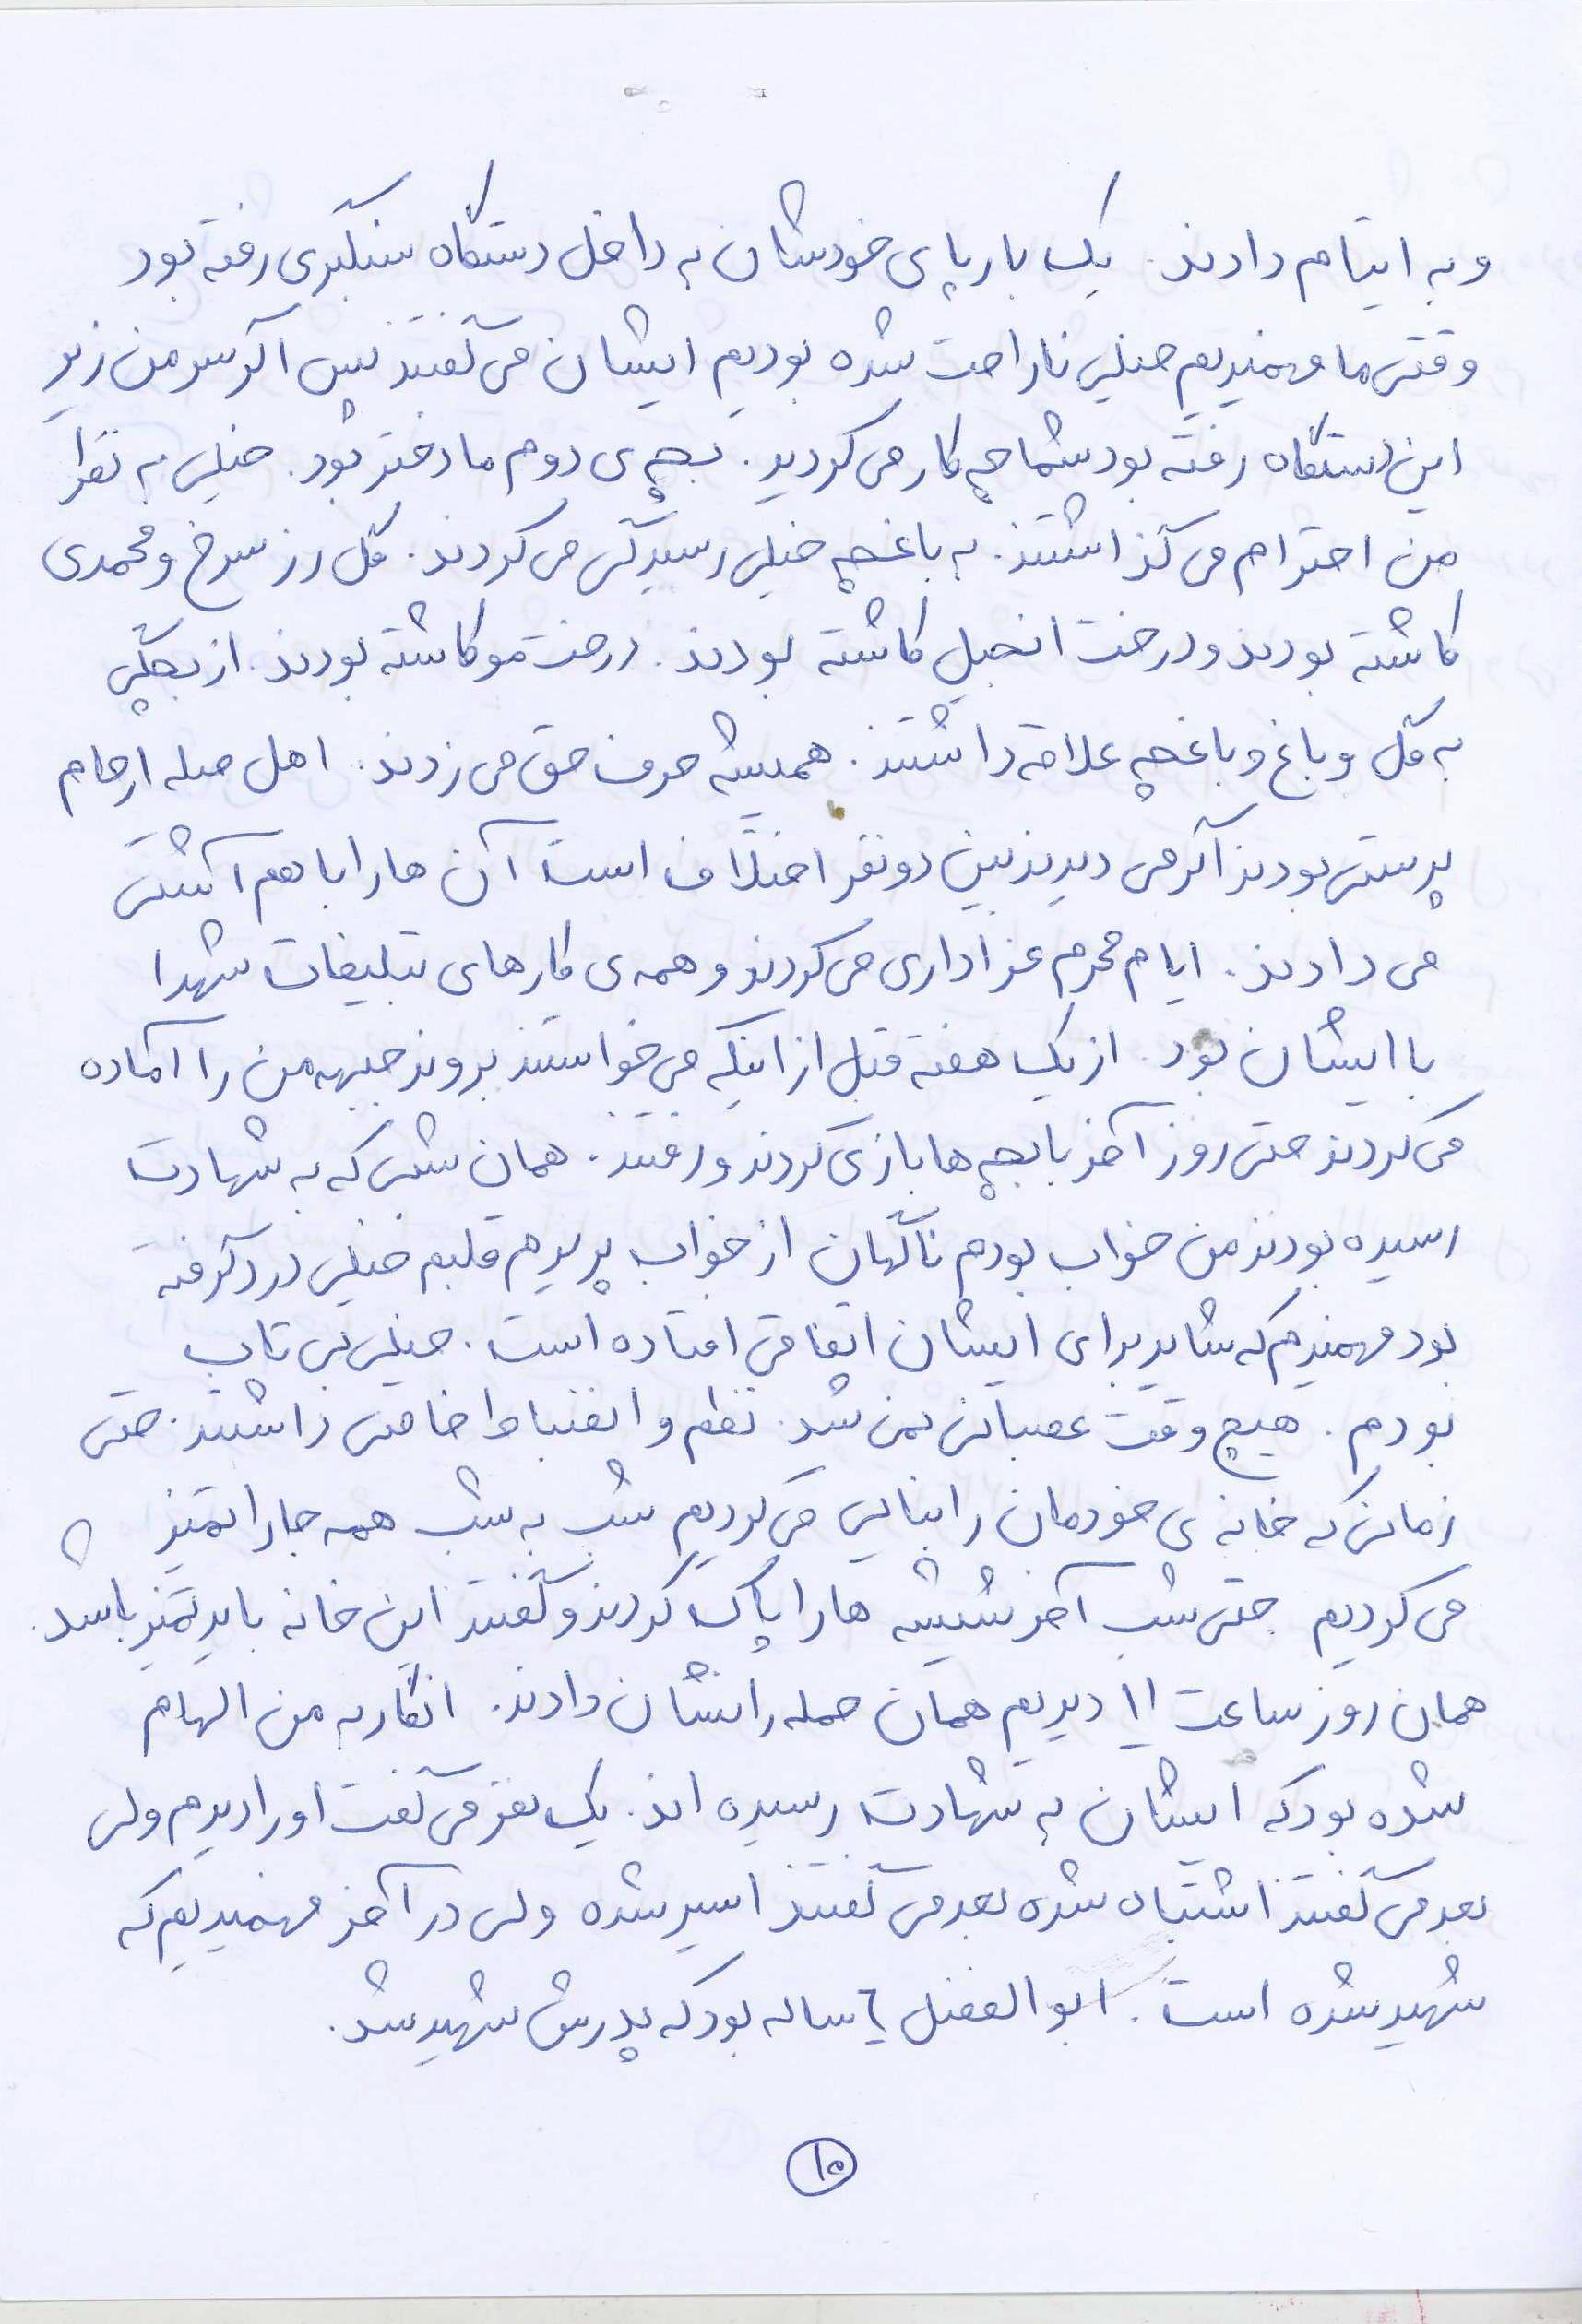 و به ایتام دادند. یک بار پای خودشان به داخل دستگاه سنگبری رفته بود
وقتی ما فهمیدیم خیلی ناراحت شده بودیم ایشان می گفتند پس اگر سر من زیر
این دستگاه رفته بود شما چه کار می کردید. بچه ی دوم ما دختر بود. خیلی به نظر
من احترام می گذاشتند. به باغچه خیلی رسیدگی می کردند. گل رز سرخ و محمدی
کاشته بودند و درخت انجیل کاشته بودند. درخت مو کاشته بودند. از بچگی
به گل و باغ و باغچه علاقه داشتند. همیشه حرف حق می زدند. اهل صله ارحام
پرستی بودند اگر می دیدند بین دو نفر اختلاف است آن ها را با هم آشتی
می دادند. ایام محرم عزاداری می کردند و همه ی کارهای تبلیغات شهدا
با ایشان بود. از یک هفته قبل از اینکه می خواستند بروند جبهه من را آماده
می کردند حتی روز آخر با بچه ها بازی کردند و رفتند. همان شبی که به شهادت
رسیده بودند من خواب بودم ناگهان از خواب پریدم قلبم خیلی درد گرفته
بود فهمیدم که شاید برای ایشان اتفاقی افتاده است. خیلی بی تاب
بودم. هیچ وقت عصبانی نمی شد. نظم و انضباط خاصی داشتند. حتی
زمانی که خانه ی خودمان را بنایی می کردیم شب به شب همه جا را تمیز
می کردیم حتی شب آخر شیشه ها را پاک کردند و گفتند این خانه باید تمیز باشد.
همان روز ساعت ۱۱ دیدیم همان حمله را نشان دادند. انگار به من الهام
شده بود که ایشان به شهادت رسیده اند. یک نفر می گفت او را دیدم ولی
بعد می گفتند اشتباه شده بعد می گفتند اسیر شده ولی در آخر فهمیدیم که
شهید شده است. ابوالفضل ۶ ساله بود که پدرش شهید شد.
۱۰